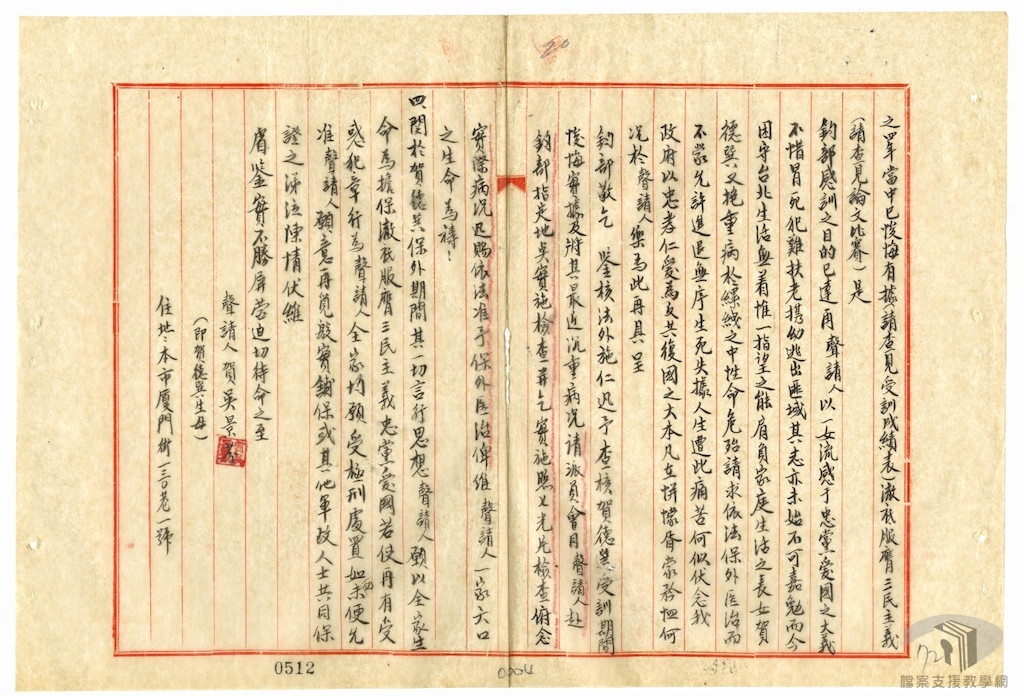 之單當中已悛悔有據(請查見受訓成績表)澈底服膺三民主義
(請查見論文比賽)是
鈞部感訓之目的已達再聲請人以一女流感于忠黨愛國之大義
不惜冒死犯難扶老携幼逃出匪域其志亦未始不可嘉勉而今
困守台北生活無着惟一指望之能肩負家庭生活之長女賀
德巽又抱重病於縲絏之中性命危殆請求依法保外医治而
不蒙允許進退無序生死失據人生遭此痛苦何似伏念我
政府以忠孝仁愛為反共復國之大本凡在悱懷咨蒙矜恤何
况於聲請人樂為此再具呈
鈞部敬乞 鑒核法外施仁迅予查核賀德巽受訓期間
悛悔實據及將其最近沉重病况請派員會同聲請人赴
鈞部指定地点實施檢查并乞實施照乂光片檢查俯念
實際病况迅賜依法准予保外医治俾維聲請人一家六口
之生命為禱!
四、關於賀德巽保外期間其一切言行思想聲請人願以全家生
命為擔保澈底服膺三民主義忠黨愛國若使再有受
惑犯章行為聲請人全家均願受極刑處置如仍未便允
准聲請人願意再覓殷實舖保或其他軍政人士共同保
證之涕泣陳情伏維
睿鉴實不勝屏營迫切待命之至
聲請人賀吳景
(即賀德巽生母)
住地:本市厦門街一三〇巷一號
20
0512
0004
72
檔案支援教學網